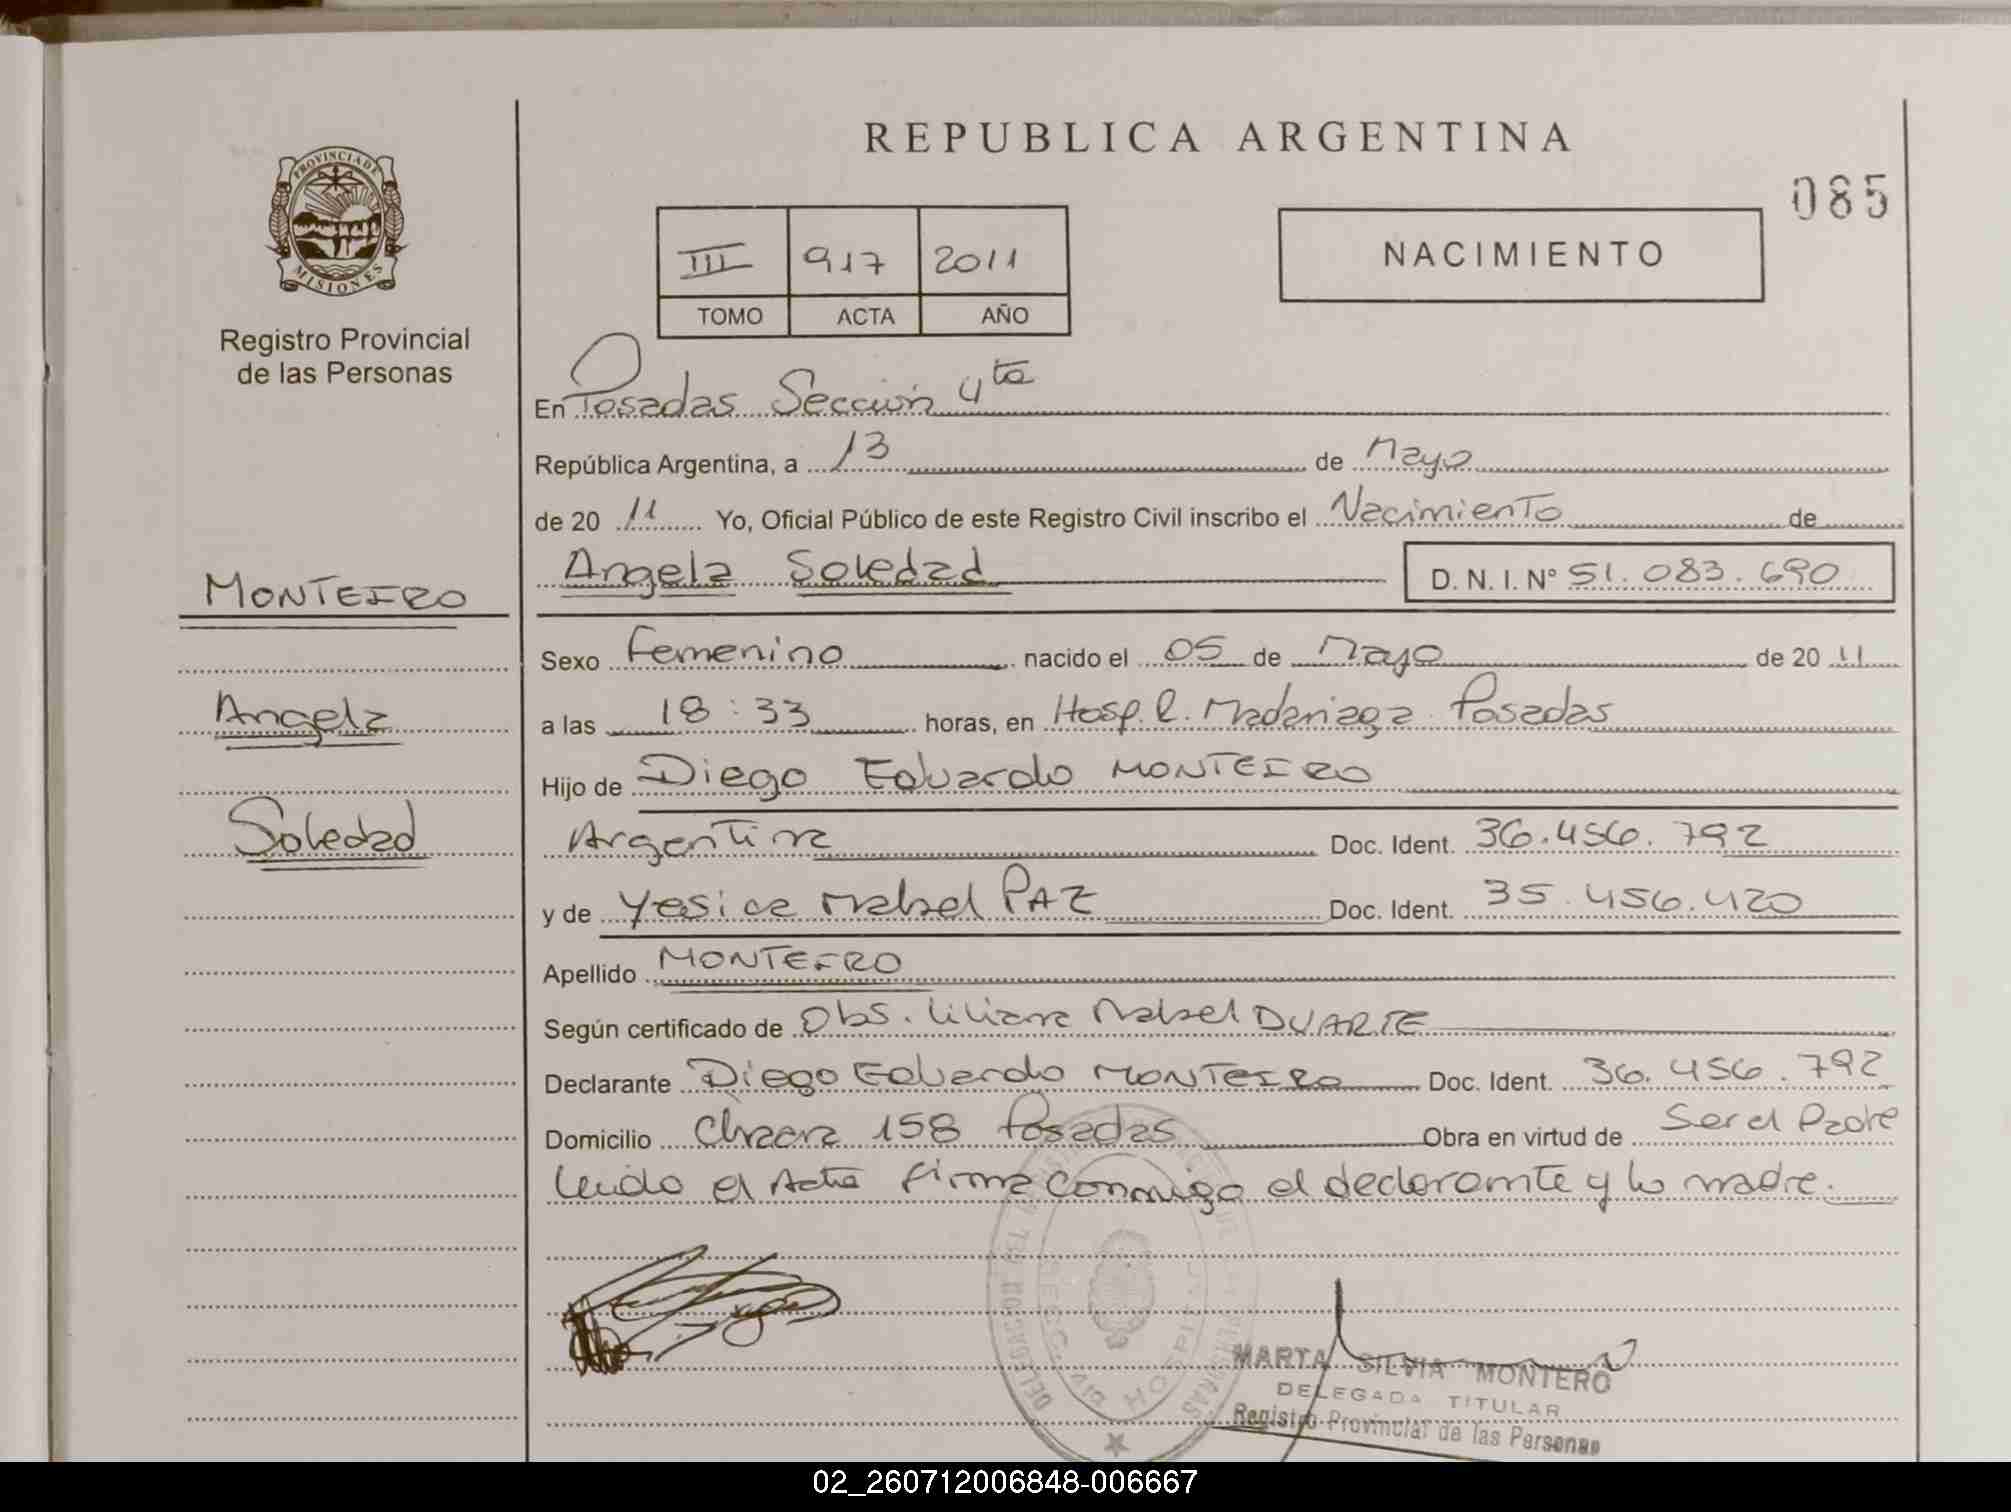 REPUBLICA ARGENTINA
085
PROVINCIA DE
MISIONES
Registro Provincial
de las Personas
III 917 2011
TOMO ACTA AÑO
NACIMIENTO
En Posadas Sección 4ta
República Argentina, a 13 de Mayo
de 20 11 Yo, Oficial Público de este Registro Civil inscribo el Nacimiento de
Angela Soledad D.N.I. Nº 51.083.690
MONTEIRO
Angela
Soledad
Sexo Femenino nacido el 05 de Mayo de 20 11
a las 18:33 horas, en Hosp. R. Madariaga Posadas
Hijo de Diego Eduardo MONTEIRO
Argentina Doc. Ident. 36.456.792
y de Yesica Mabel PAZ Doc. Ident. 35.456.420
Apellido MONTEIRO
Según certificado de Obs. Liliana Mabel DUARTE
Declarante Diego Eduardo MONTEIRO Doc. Ident. 36.456.792
Domicilio Chacra 158 Posadas Obra en virtud de Ser el Padre
Leido el Acta firma conmigo el declarante y la madre.
MARTA SILVIA MONTERO
DELEGADA TITULAR
Registro Provincial de las Personas
02_260712006848-006667